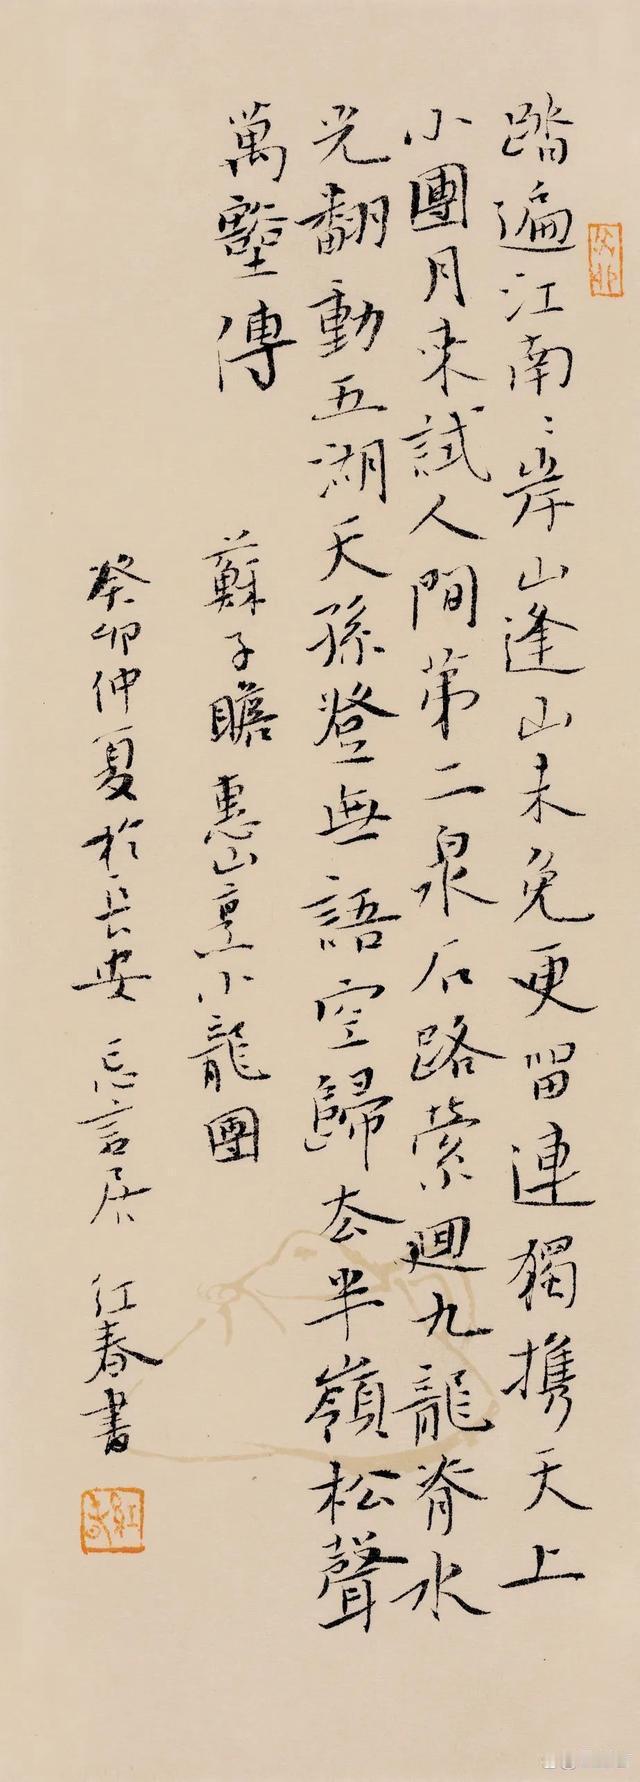 踏遍江南〻岸山逢山未免更留連獨携天上
小團月来試人間第二泉石路縈廻九龍脊水
光翻動五湖天孫登無語空歸去半嶺松聲
萬壑傳
蘇子瞻 惠山烹小龍團
癸卯仲夏於長安 忘言居 红春書